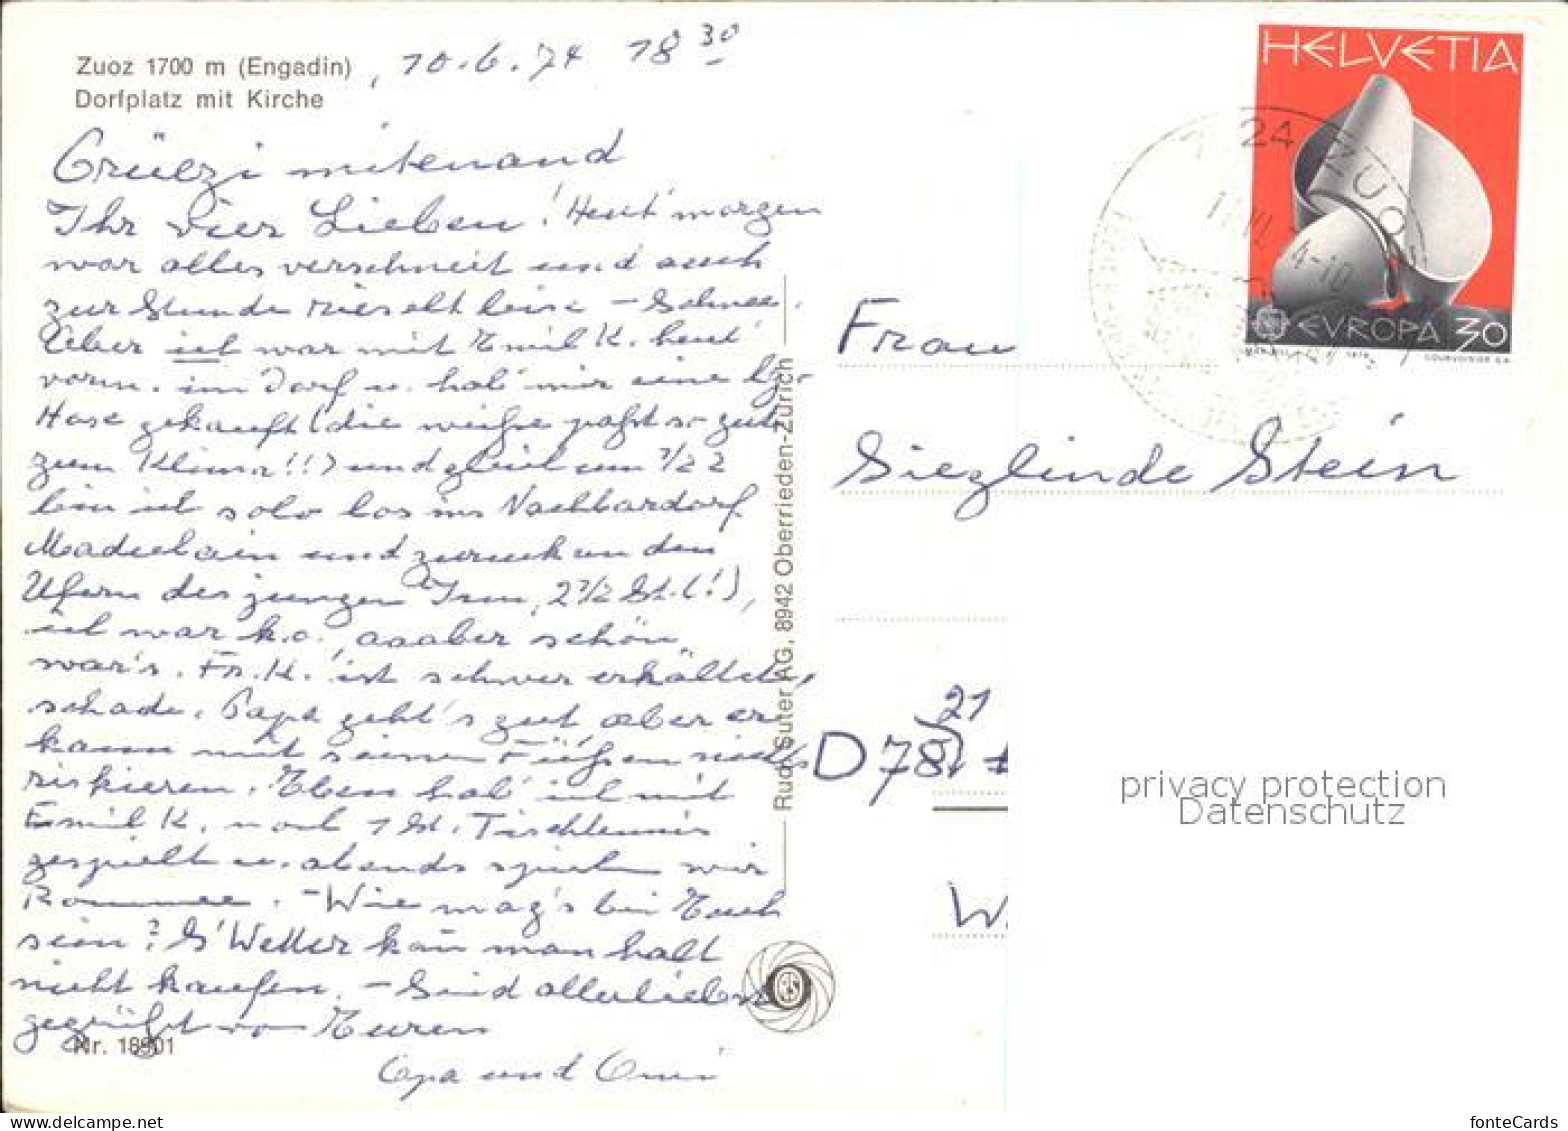 Zuoz 1700 m (Engadin)
Dorfplatz mit Kirche
, 10.6.74 18 30
Grüezi mitenand
Ihr vier Lieben! Heut' morgen
war alles verschneit und auch
zur Stunde rieselt leise – Schnee.
Aber ich war mit Emil K. heut'
vorm. im Dorf u. hab' mir eine
Hose gekauft (die weiße paßt so gut
zum Klima!!) und gleich um 1/2 2
bin ich solo los ins Nachbardorf
Madulain und zurück an den
Ufern des jungen Inn, 2 1/2 St. (!),
ich war k.o., aaaber schön
war's. Fr. K. ist schwer erkältet,
schade. Papa geht's gut aber er
kann mit seinen Füßen nichts
riskieren. Eben hab' ich mit
Emil K. noch 1 St. Tischtennis
gespielt u. abends spielen wir
Rommee. – Wie mag's bei Euch
sein? S' Wetter kan man halt
nicht kaufen. – Seid allerliebst
gegrüßt von Euren
Opa und Omi
Nr. 18901
Rud. Suter AG, 8942 Oberrieden-Zürich
HELVETIA
EVROPA 30
COURVOISIER S.A.
24 ZUOZ
Frau
Sieglinde Stein
21
D 78
W
privacy protection
Datenschutz
fonteCards